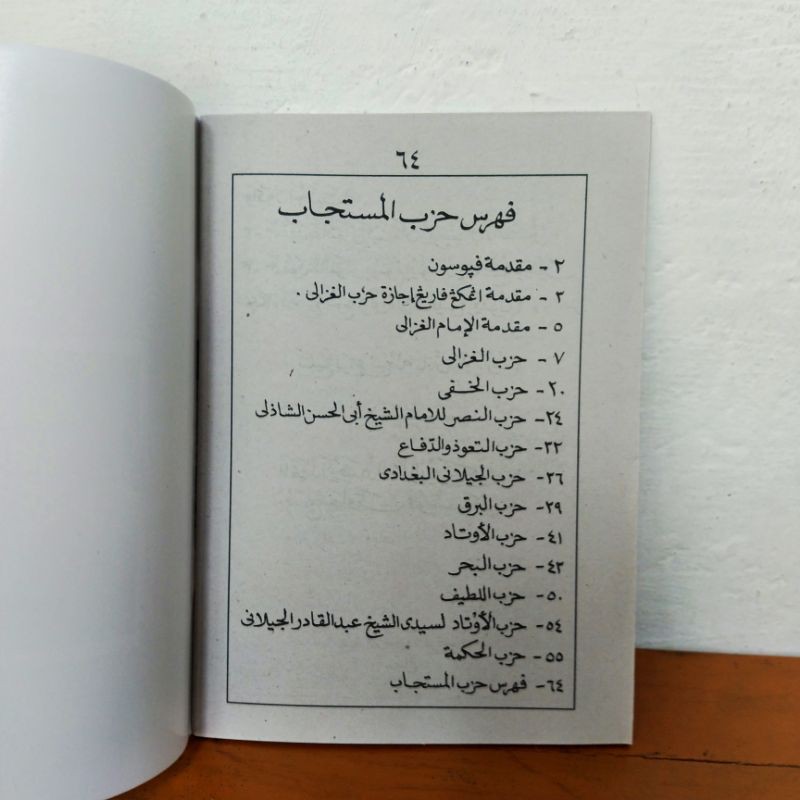 ٦٤
فهرس حزب المستجاب
٢ - مقدمة فپوسون
٣ - مقدمة اڠكڠ فاريڠ إجازة حزب الغزالى .
٥ - مقدمة الإمام الغزالى
٧ - حزب الغزالى
٢٠ - حزب الخفى
٢٤ - حزب النصر للامام الشيخ أبى الحسن الشاذلى
٣٢ - حزب التعوذ والدّفاع
٣٦ - حزب الجيلانى البغدادى
٣٩ - حزب البرق
٤١ - حزب الأوتاد
٤٣ - حزب البحر
٥٠ - حزب اللطيف
٥٤ - حزب الأوتاد لسيدى الشيخ عبد القادر الجيلانى
٥٥ - حزب الحكمة
٦٤ - فهرس حزب المستجاب